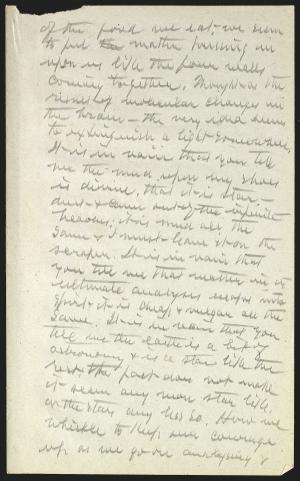 of the food we eat, we seem
to feel the matter pushing in
upon us like the four walls
coming together, Thought as the
result of molecular changes in
the brain — the very idea seems
to extinguish a light somewhere.
It is in vain that you tell
me the mud upon my shoes
is divine, that it is star-
dust & came out of the infinite
heavens; it is mud all the
same & I must leave it on the
scraper. It is in vain that
you tell me that matter in its
ultimate analysis escapes into
spirit & it is cheap & vulgar all the
same. It is in vain that you
tell me the earth is a bit of
astronomy & is a star like the
rest, the fact does not make
it seem any more star like,
or the stars any less so. How we
whistle to keep our courage
up as we go on analysing &